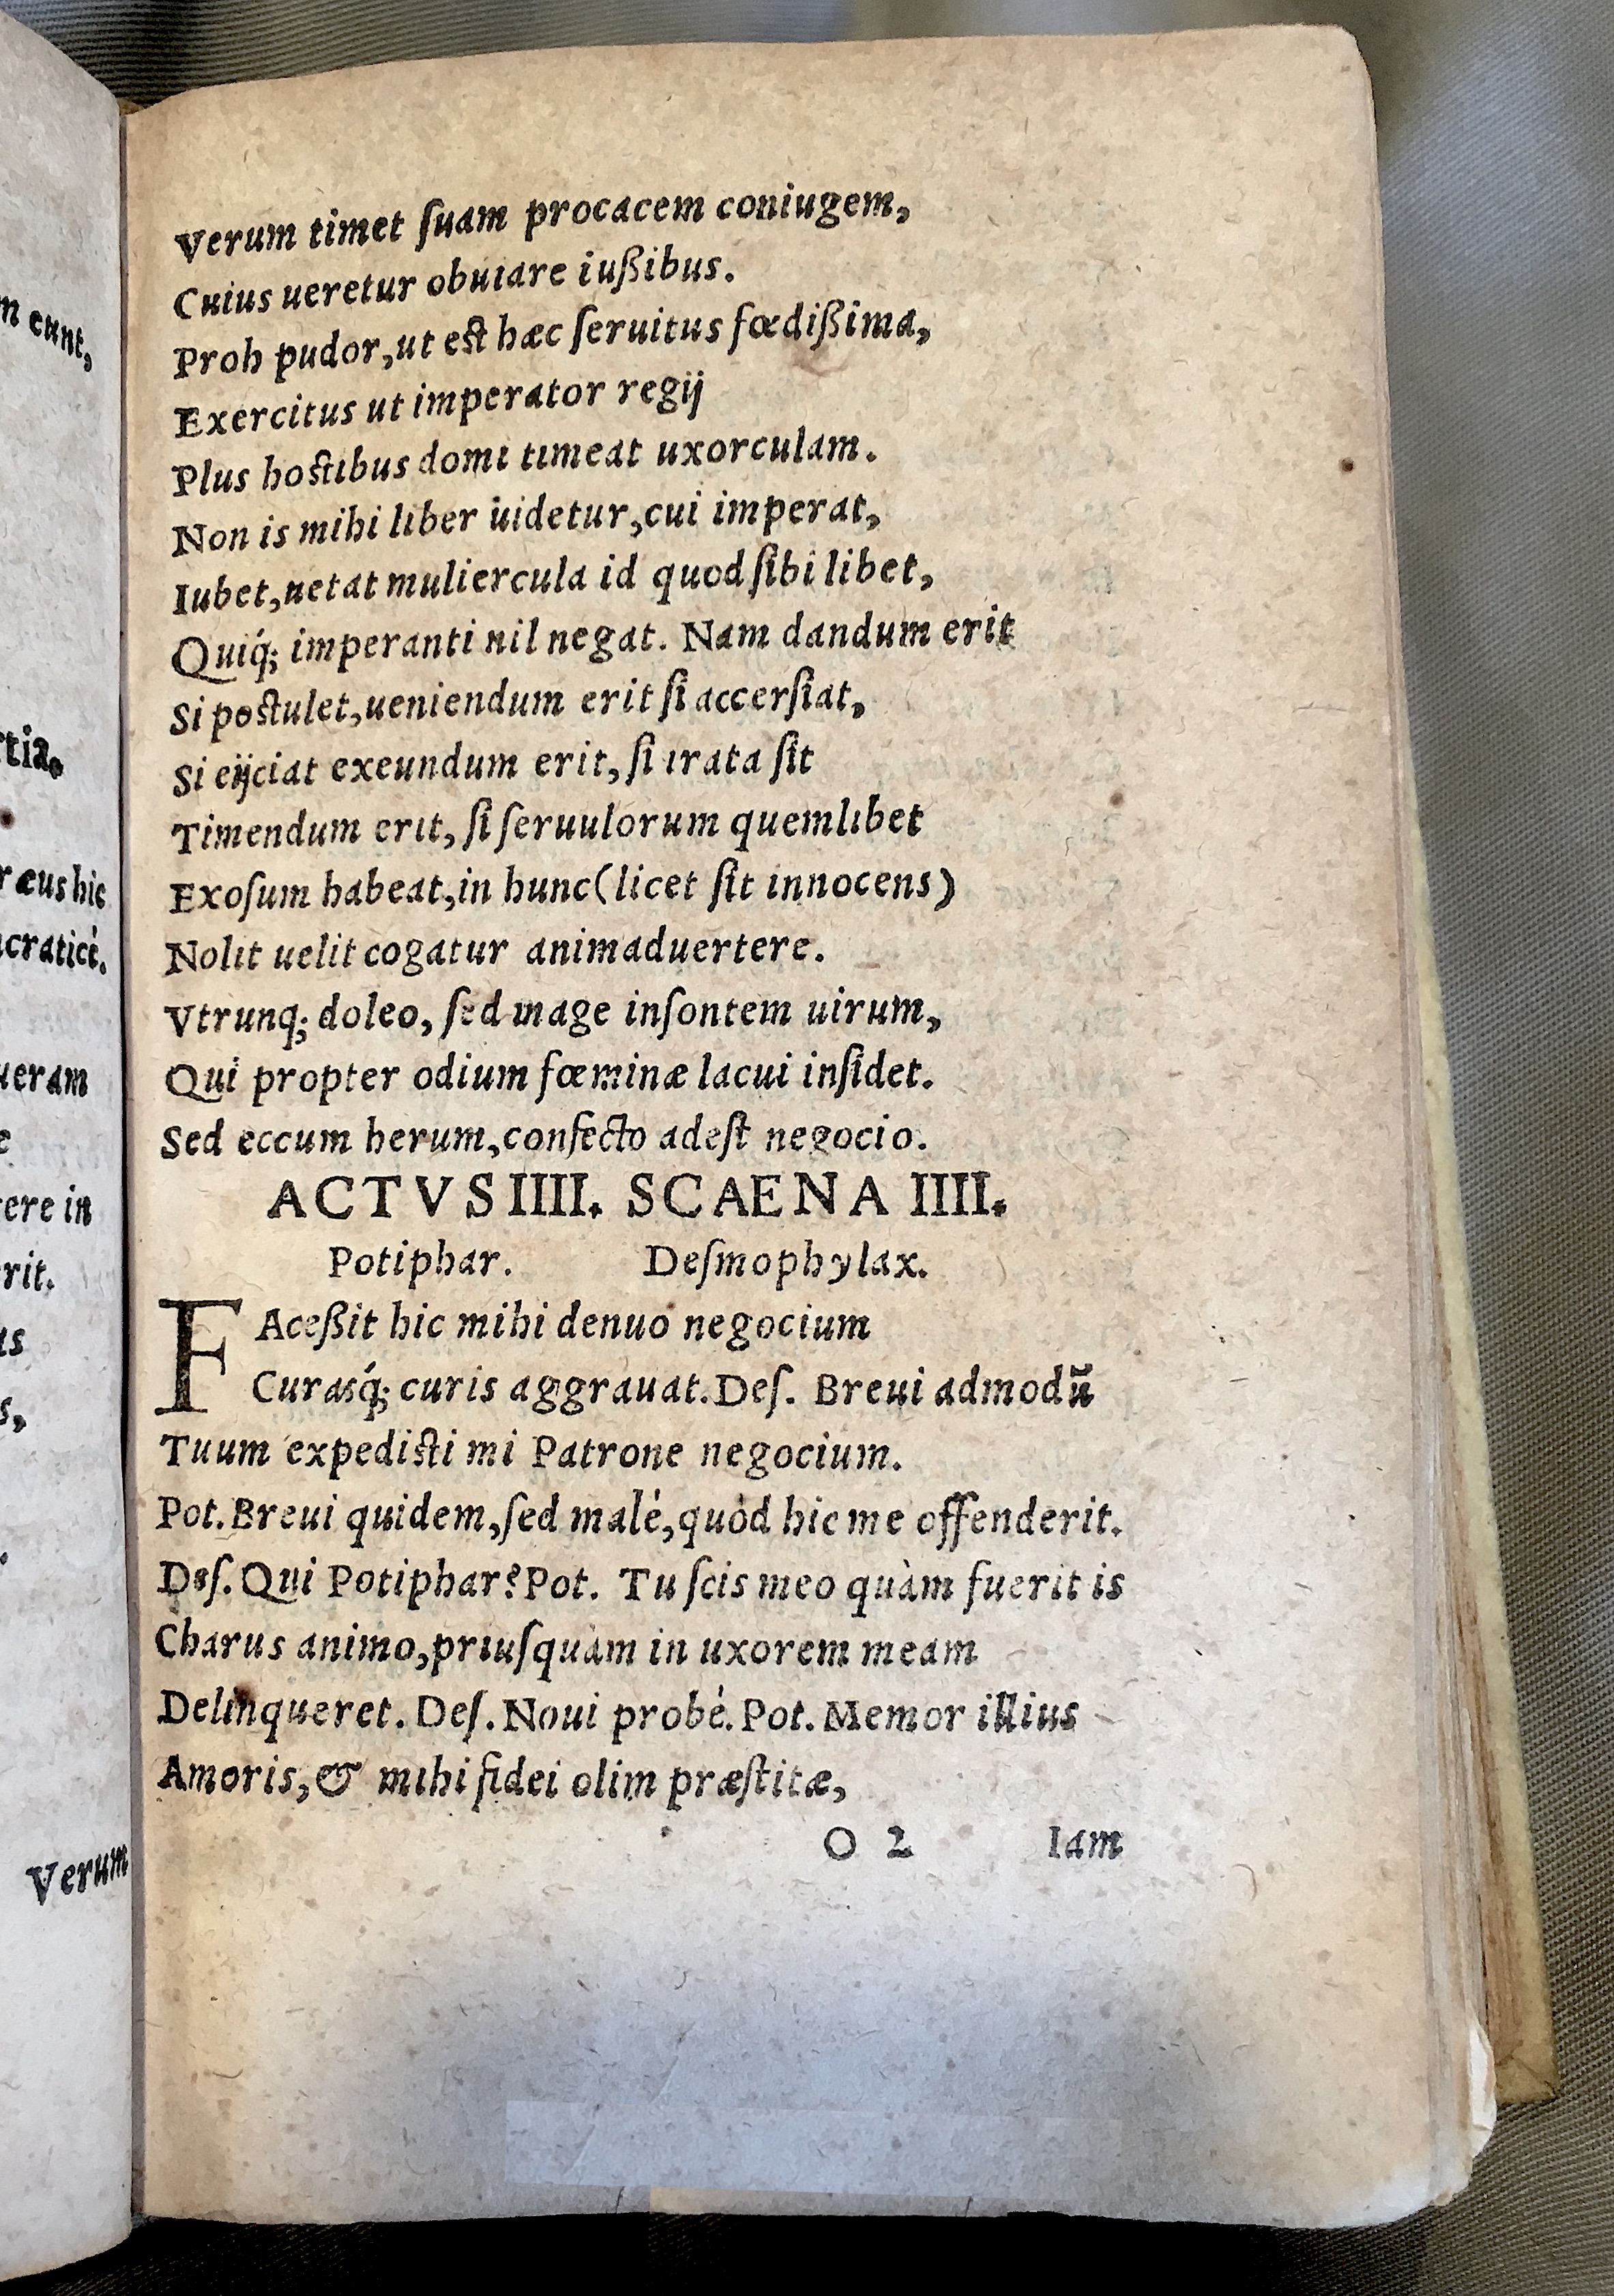 Verum timet ſuam procacem coniugem,
Cuius ueretur obuiare iußibus.
Proh pudor, ut est hæc ſeruitus fœdißima,
Exercitus ut imperator regij
Plus hostibus domi timeat uxorculam.
Non is mihi liber uidetur, cui imperat,
Iubet, uetat muliercula id quod ſibi libet,
Quiq́; imperanti nil negat. Nam dandum erit
Si postulet, ueniendum erit ſi accerſiat,
Si eijciat exeundum erit, ſi irata ſit
Timendum erit, ſi ſeruulorum quemlibet
Exoſum habeat, in hunc (licet ſit innocens)
Nolit uelit cogatur animaduertere.
Vtrunq; doleo, ſed mage inſontem uirum,
Qui propter odium fœminæ lacui inſidet.
Sed eccum herum, confecto adeſt negocio.
ACTVS IIII. SCAENA IIII.
Potiphar. Deſmophylax.
FAceßit hic mihi denuo negocium
Curasq́; curis aggrauat. Deſ. Breui admodū
Tuum expedisti mi Patrone negocium.
Pot. Breui quidem, ſed malè, quòd hic me offenderit.
Deſ. Qui Potiphar? Pot. Tu ſcis meo quàm fuerit is
Charus animo, priuſquàm in uxorem meam
Delinqueret. Deſ. Noui probè. Pot. Memor illius
Amoris, & mihi fidei olim præſtitæ,
O 2 Iam
n eunt,
rtia.
ræus hic
ucraticè.
ueram
e
tere in
rit.
us
s,
Verum